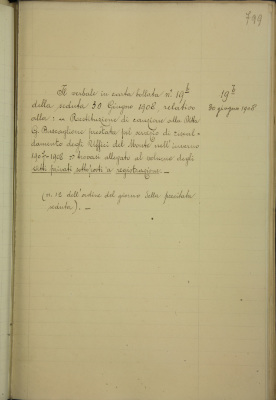 799
Il verbale in carta bollata n. 19
della seduta 30 Giugno 1908, relativo
alla: — Restituzione di cauzione alla Ditta
prestata pel servizio di riscal-
damento degli Uffici del Monte nell'inverno
1907-1908 trovasi allegato al volume degli
atti privati sottoposti a registrazione. —
(n. 12 dell'ordine del giorno della precitata
seduta). —
19
30 giugno 1908